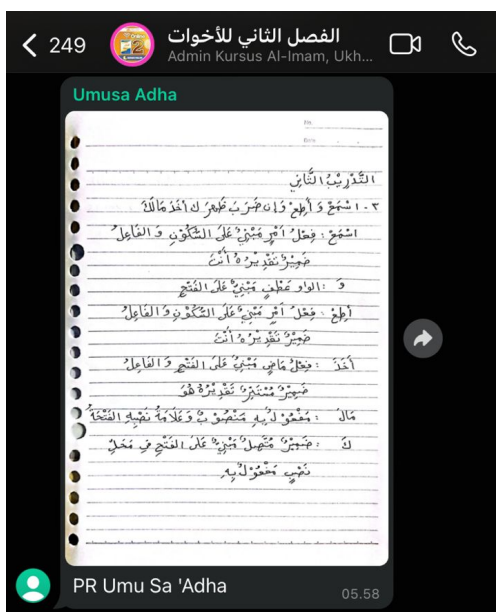 249
الفصل الثاني للأخوات
Admin Kursus Al-Imam, Ukh...
Umusa Adha
No.
Date
التَّدْرِيْبُ الثَّانِي
٢- اسْتَمِعْ وَ أَطِعْ وَ إِنْ ضَرَبَ ظَهْرَكَ أَخَذَ مَالَكَ
اسْتَمِعْ : فِعْلُ أَمْرٍ مَبْنِيٌّ عَلَى السُّكُوْنِ وَ الفَاعِلُ
ضَمِيْرٌ تَقْدِيْرُهُ أَنْتَ
وَ : الواو عَطْفٍ مَبْنِيٌّ عَلَى الفَتْحِ
أَطِعْ : فِعْلُ أَمْرٍ مَبْنِيٌّ عَلَى السُّكُوْنِ وَ الفَاعِلُ
ضَمِيْرٌ تَقْدِيْرُهُ أَنْتَ
أَخَذَ : فِعْلُ مَاضٍ مَبْنِيٌّ عَلَى الفَتْحِ وَ الفَاعِلُ
ضَمِيْرٌ مُسْتَتِرٌ تَقْدِيْرُهُ هُوَ
مَالَ : مَفْعُوْلٌ بِهِ مَنْصُوْبٌ وَ عَلَامَةُ نَصْبِهِ الفَتْحَةُ
كَ : ضَمِيْرٌ مُتَّصِلٌ مَبْنِيٌّ عَلَى الفَتْحِ فِي مَحَلِّ
نَصْبٍ مَفْعُوْلٌ بِهِ
PR Umu Sa 'Adha
05.58